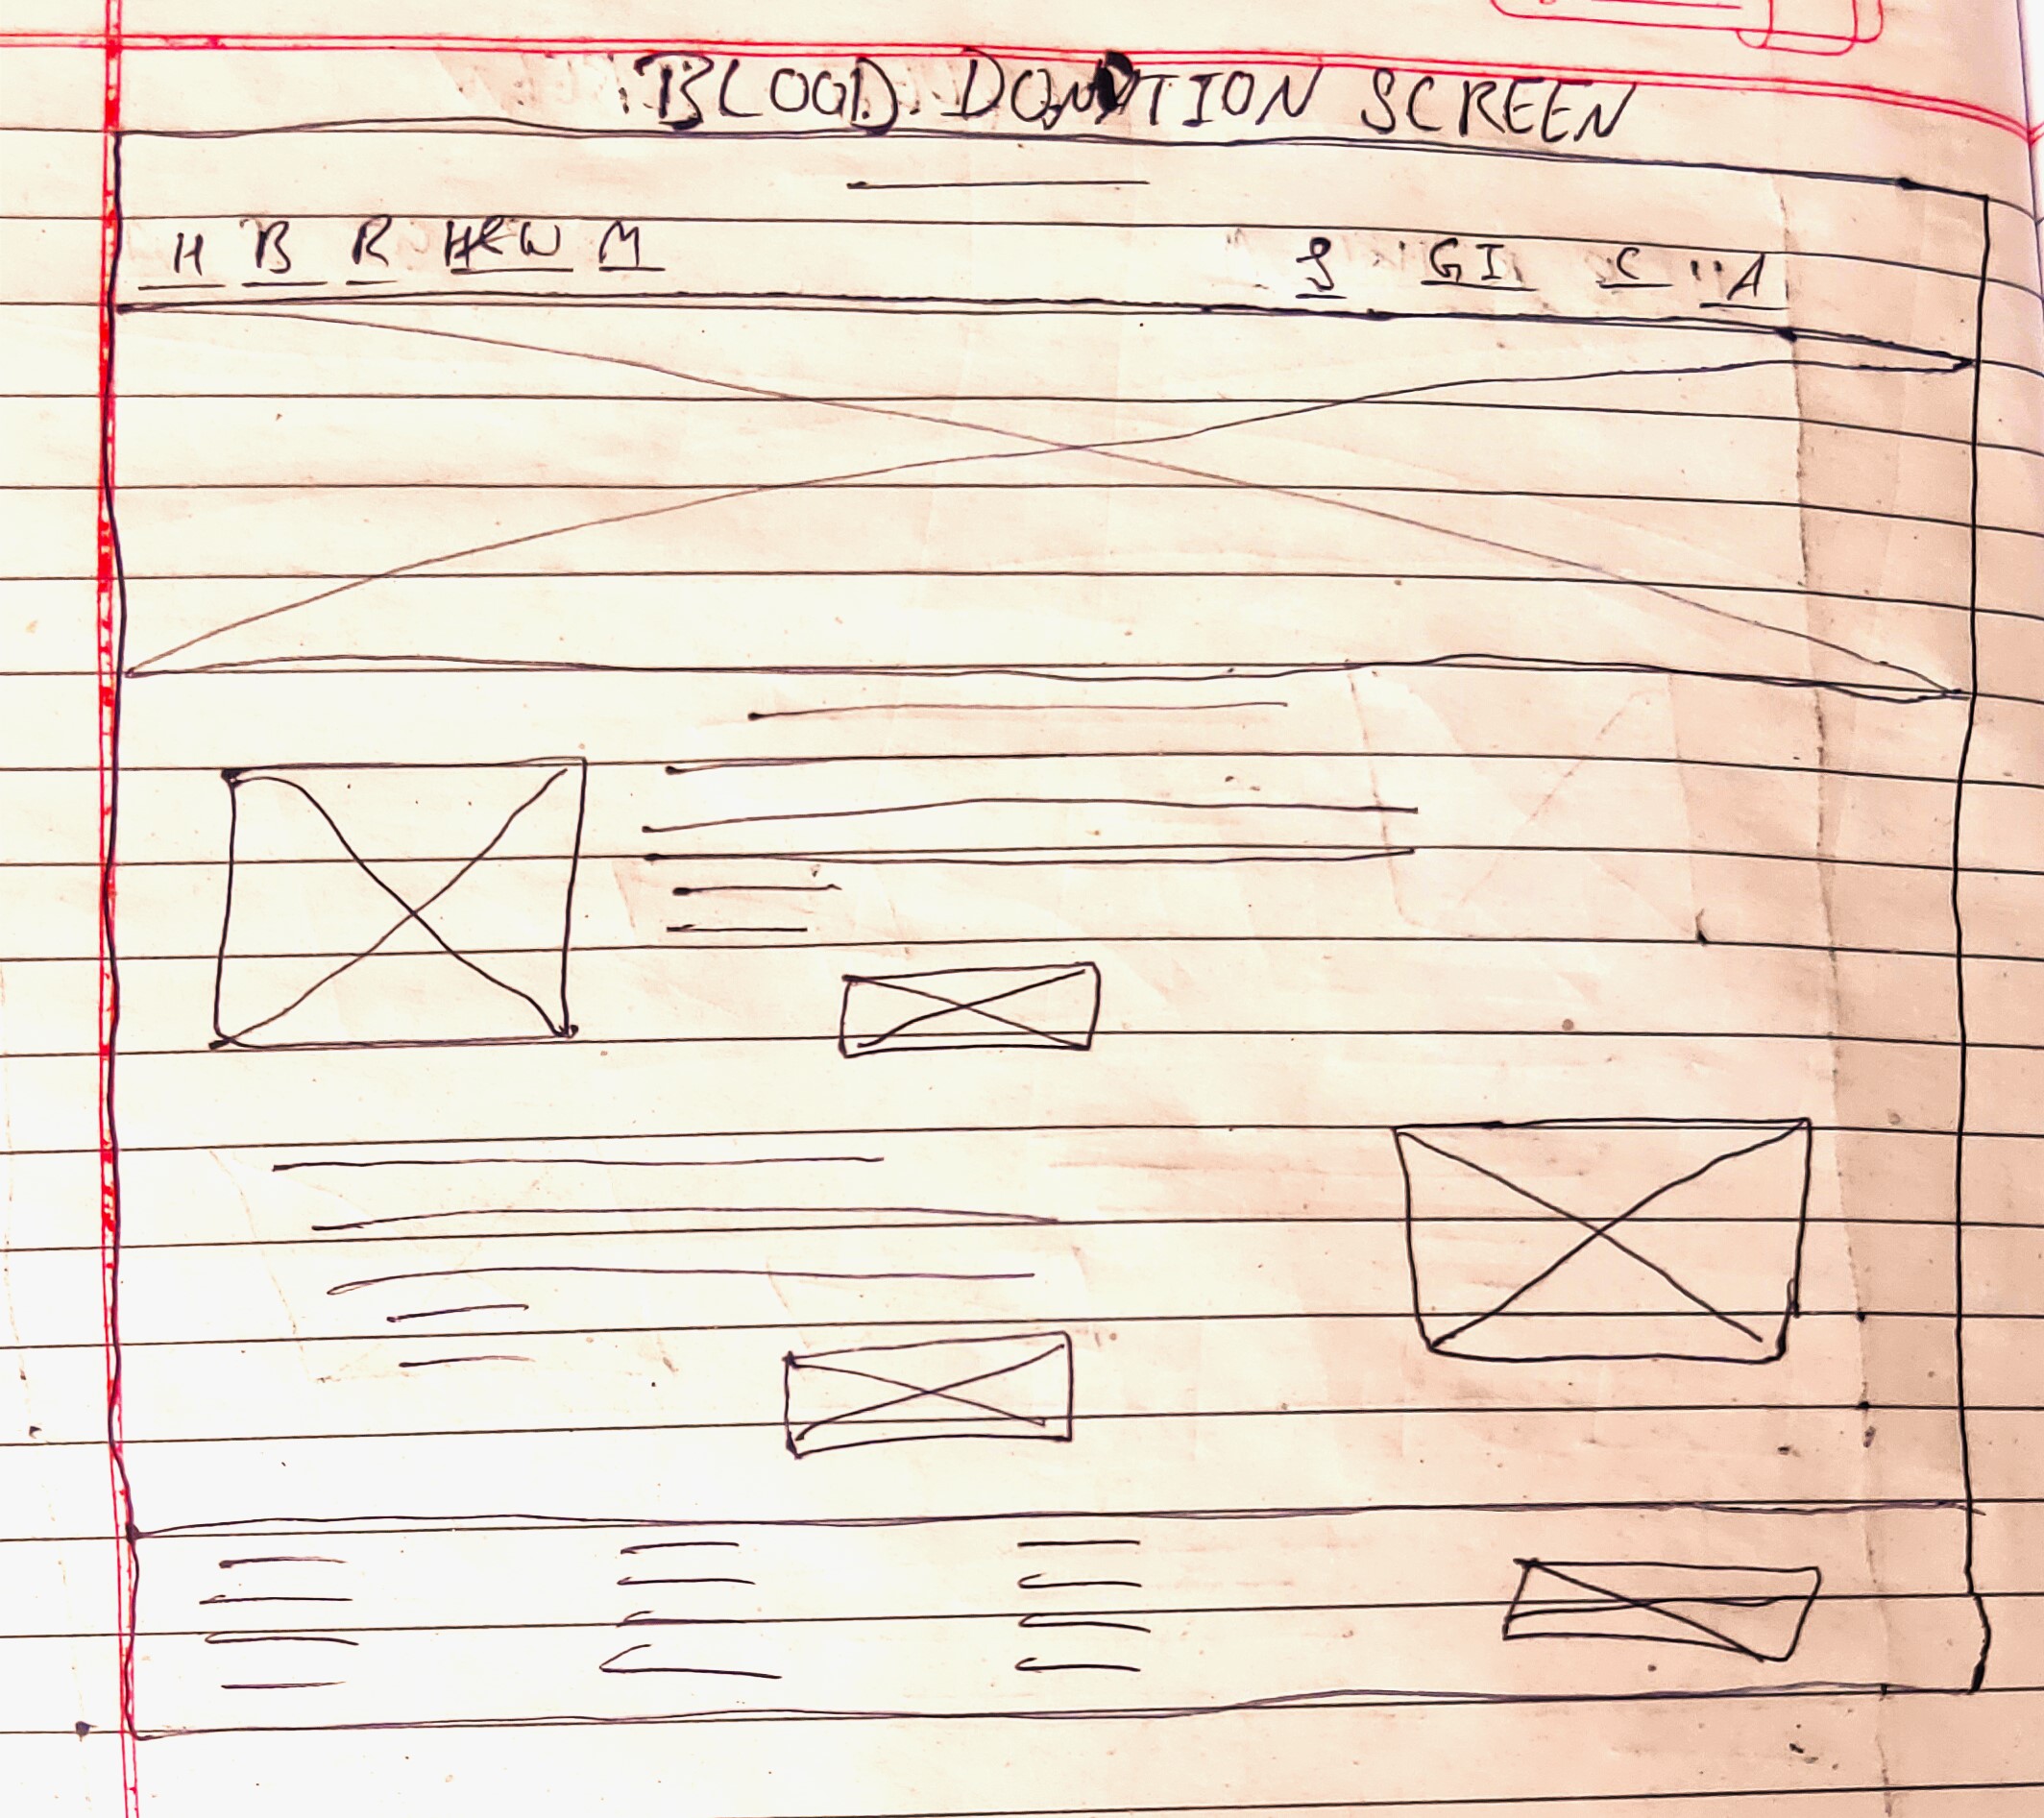 BLOOD DONATION SCREEN
H B R H&W M S GI C A